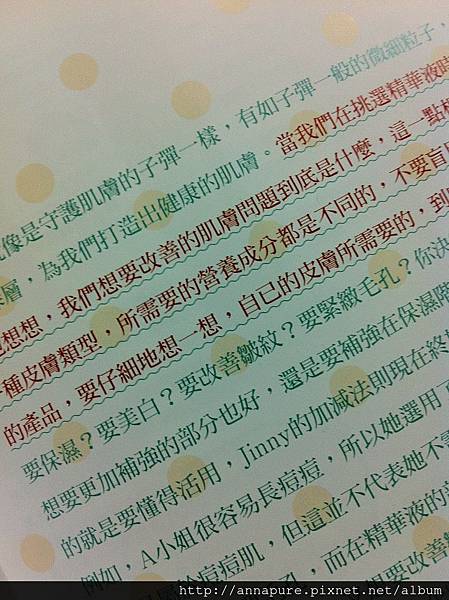 像是守護肌膚的子彈一樣，有如子彈一般的微細粒子，
層，為我們打造出健康的肌膚。當我們在挑選精華液時
想想，我們想要改善的肌膚問題到底是什麼，這一點
種皮膚類型，所需要的營養成分都是不同的，不要盲
的產品，要仔細地想一想，自己的皮膚所需要的，到
要保濕？要美白？要改善皺紋？要緊緻毛孔？你決
想要更加補強的部分也好，還是要補強在保濕階
的就是要懂得活用，Jinny的加減法則現在終
例如，A小姐很容易長痘痘，所以她選用
痘痘肌，但這並不代表她不
孔，而在精華液的
想要改善
http://annapure.pixnet.net/album